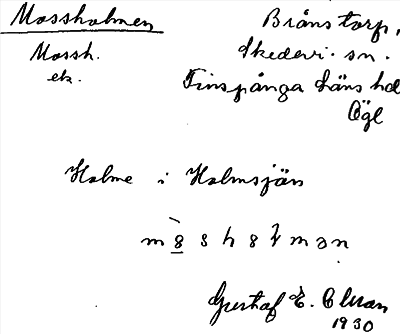 Mossholmen
Mossh.
ek.
Brånstorp,
Skedevi sn.
Finspånga läns hd
Ögl
Holme i Holmsjön
Gustaf E.
1930